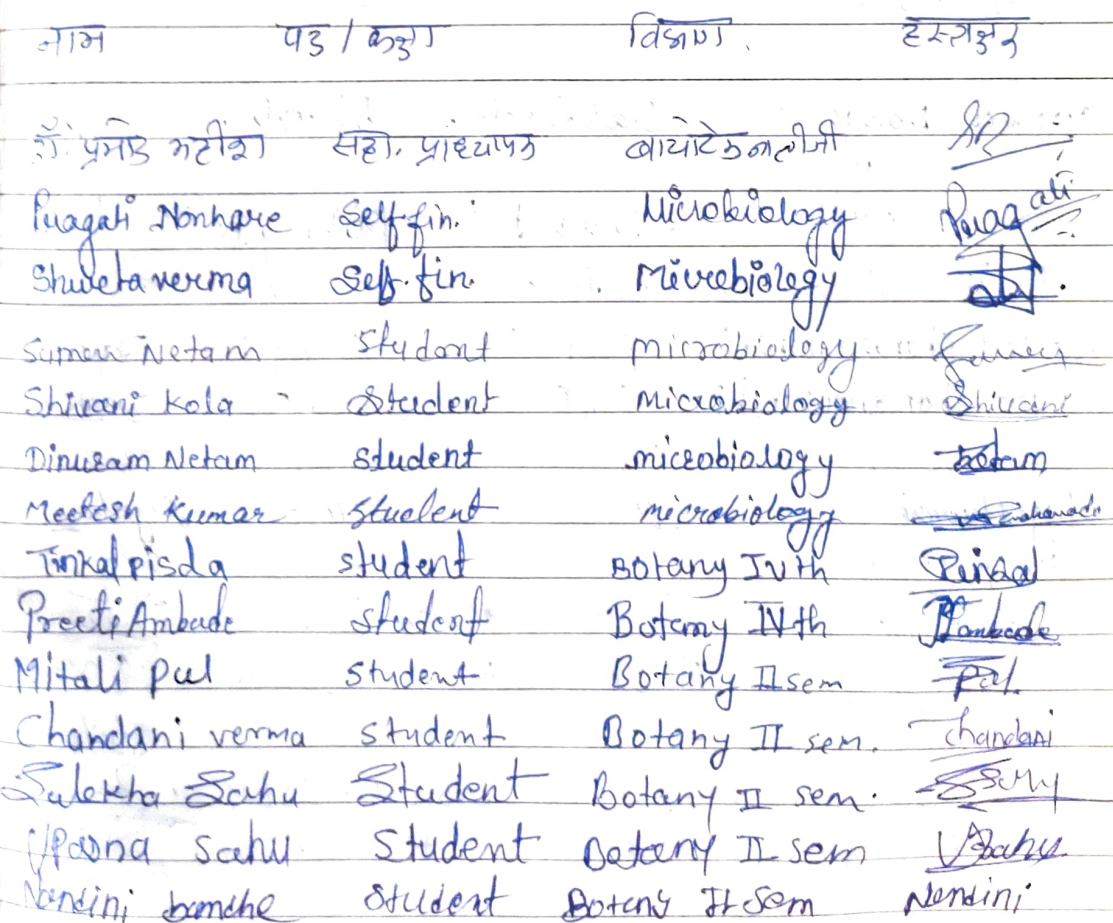 नाम पद / कक्षा विभाग हस्ताक्षर
डॉ. प्रमोद महीश सहा. प्राध्यापक बायोटेक्नालॉजी
Pragati Nonhare Self-fin. Microbiology Pragati
Shweta verma Self. fin. Microbiology
Suman Netam Student microbiology Suman
Shivani Kola Student microbiology Shivani
Dinuram Netam student microbiology Netam
Meetesh Kumar Student microbiology
Tinkal pisda student Botany IVth
Preeti Ambade student Botany IVth PAmbade
Mitali pal student Botany II sem Pal.
Chandani verma student Botany II sem. Chandani
Sulekha Sahu Student Botany II sem. SSahu
Upasna Sahu Student Botany II sem USahu
Nandini banche Student Botany II Sem Nandini